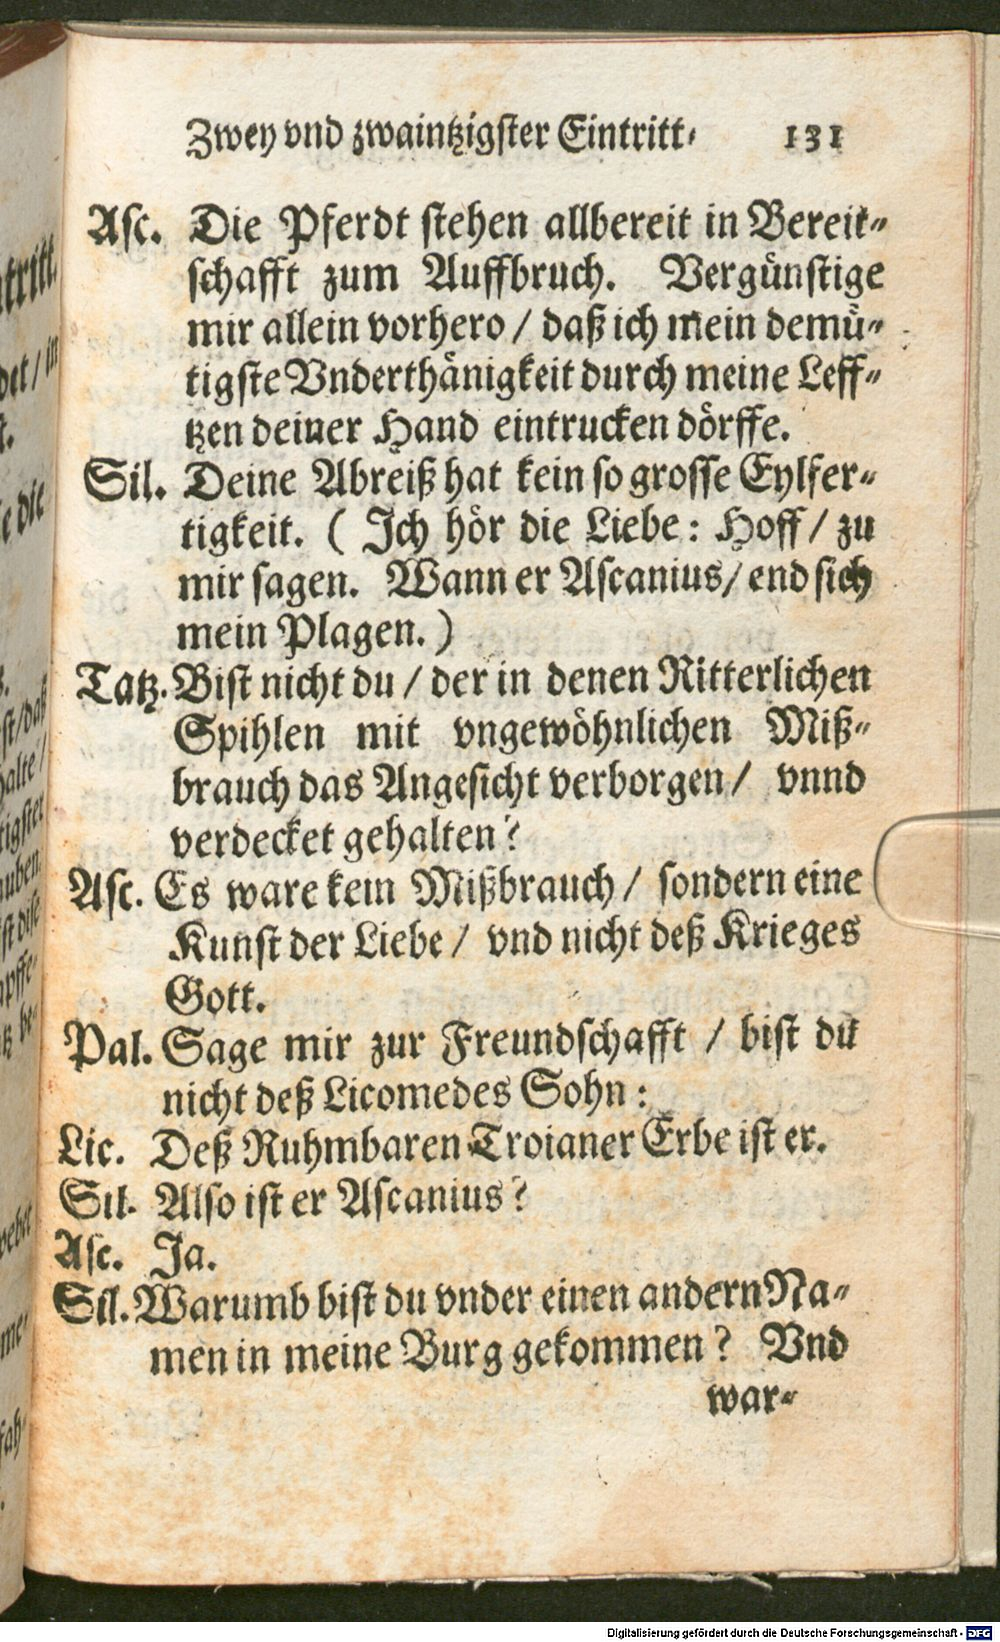 Zwey vnd zwaintzigster Eintritt. 131
Asc. Die Pferdt stehen allbereit in Bereit-
schafft zum Auffbruch. Vergünstige
mir allein vorhero / daß ich mein demü-
tigste Vnderthänigkeit durch meine Leff-
tzen deiner Hand eintrucken dörffe.
Sil. Deine Abreiß hat kein so grosse Eylfer-
tigkeit. ( Ich hör die Liebe: Hoff / zu
mir sagen. Wann er Ascanius / end sich
mein Plagen. )
Tatz. Bist nicht du / der in denen Ritterlichen
Spihlen mit vngewöhnlichen Miß-
brauch das Angesicht verborgen / vnnd
verdecket gehalten?
Asc. Es ware kein Mißbrauch / sondern eine
Kunst der Liebe / vnd nicht deß Krieges
Gott.
Pal. Sage mir zur Freundschafft / bist du
nicht deß Licomedes Sohn:
Lic. Deß Ruhmbaren Troianer Erbe ist er.
Sil. Also ist er Ascanius?
Asc. Ja.
Sil. Warumb bist du vnder einen andern Na-
men in meine Burg gekommen? Vnd
war-
Digitalisierung gefördert durch die Deutsche Forschungsgemeinschaft - DFG